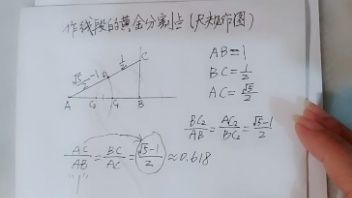 作线段的黄金分割点(尺规作图)
AB=1
BC=1/2
AC=√5/2
C
1/2
√5-1
A C₂ C₁ B
BC₂/AB=AC₂/BC₂=√5-1/2
AC/AB=BC/AC=√5-1/2≈0.618
"1"